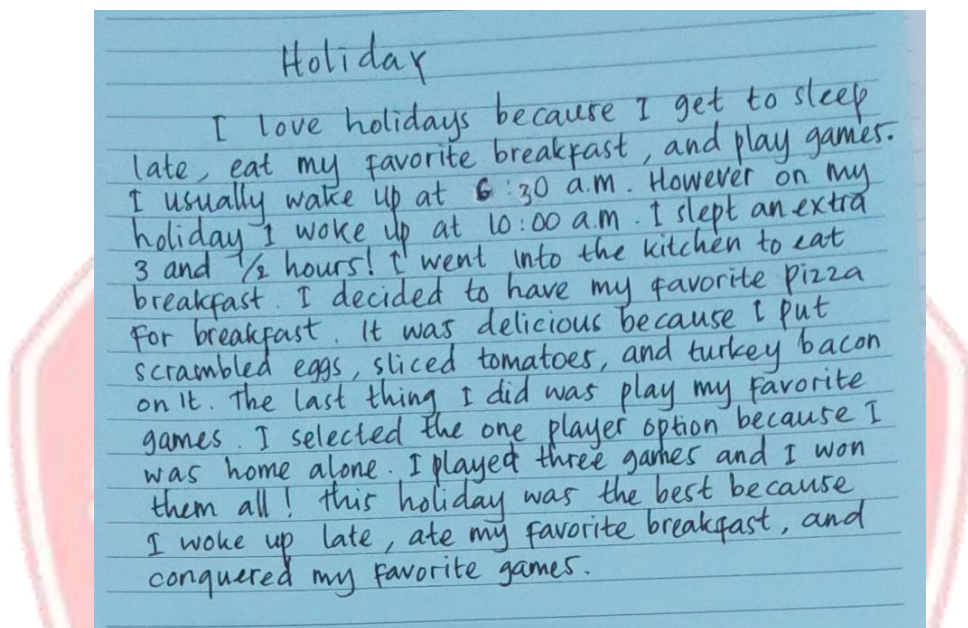 Holiday
I love holidays because I get to sleep
late, eat my favorite breakfast, and play games.
I usually wake up at 6:30 a.m. However on my
holiday I woke up at 10:00 a.m. I slept an extra
3 and 1/2 hours! I went into the kitchen to eat
breakfast. I decided to have my favorite pizza
for breakfast. It was delicious because I put
scrambled eggs, sliced tomatoes, and turkey bacon
on it. The last thing I did was play my favorite
games. I selected the one player option because I
was home alone. I played three games and I won
them all! this holiday was the best because
I woke up late, ate my favorite breakfast, and
conquered my favorite games.